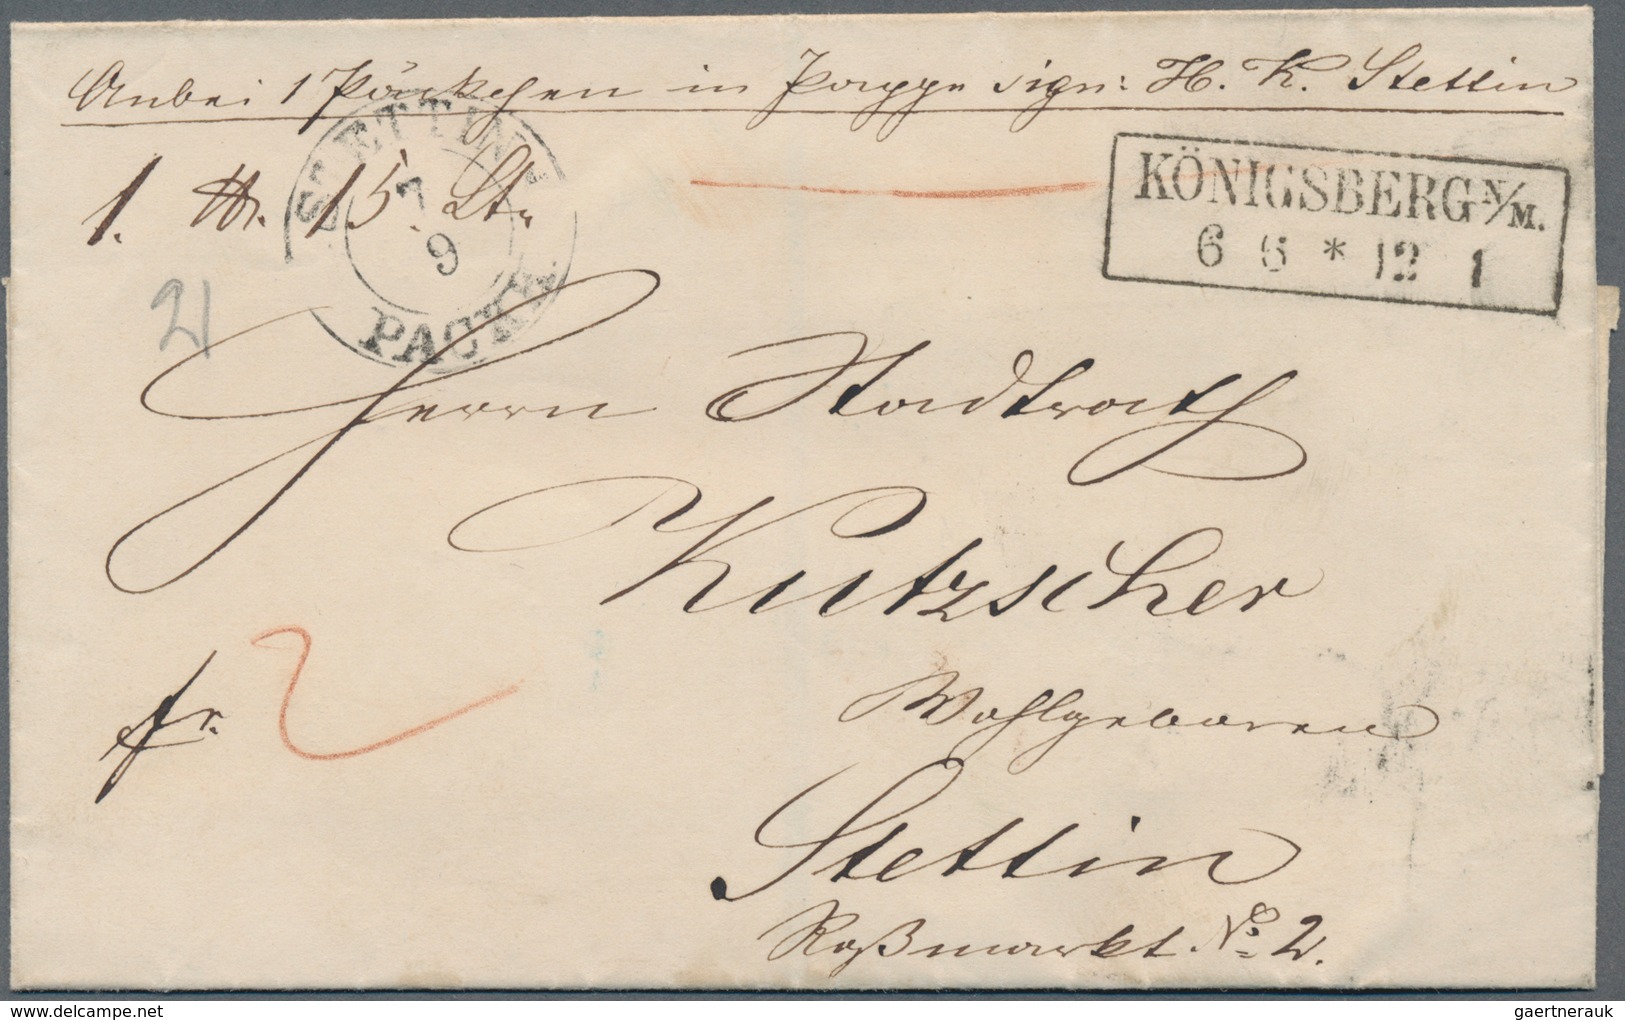 Anbei 1 Päckchen in Pappe sign: H. K. Stettin
1. ℔. 15 Lt.
STETTIN
7
9
PACK
KÖNIGSBERG N/M.
6 6 * 12 1
21
Herrn Stadtrath
Kutzscher
fr. 2
Wohlgeboren
Stettin
Roßmarkt No 2.
delcampe.net
gaertnerauk